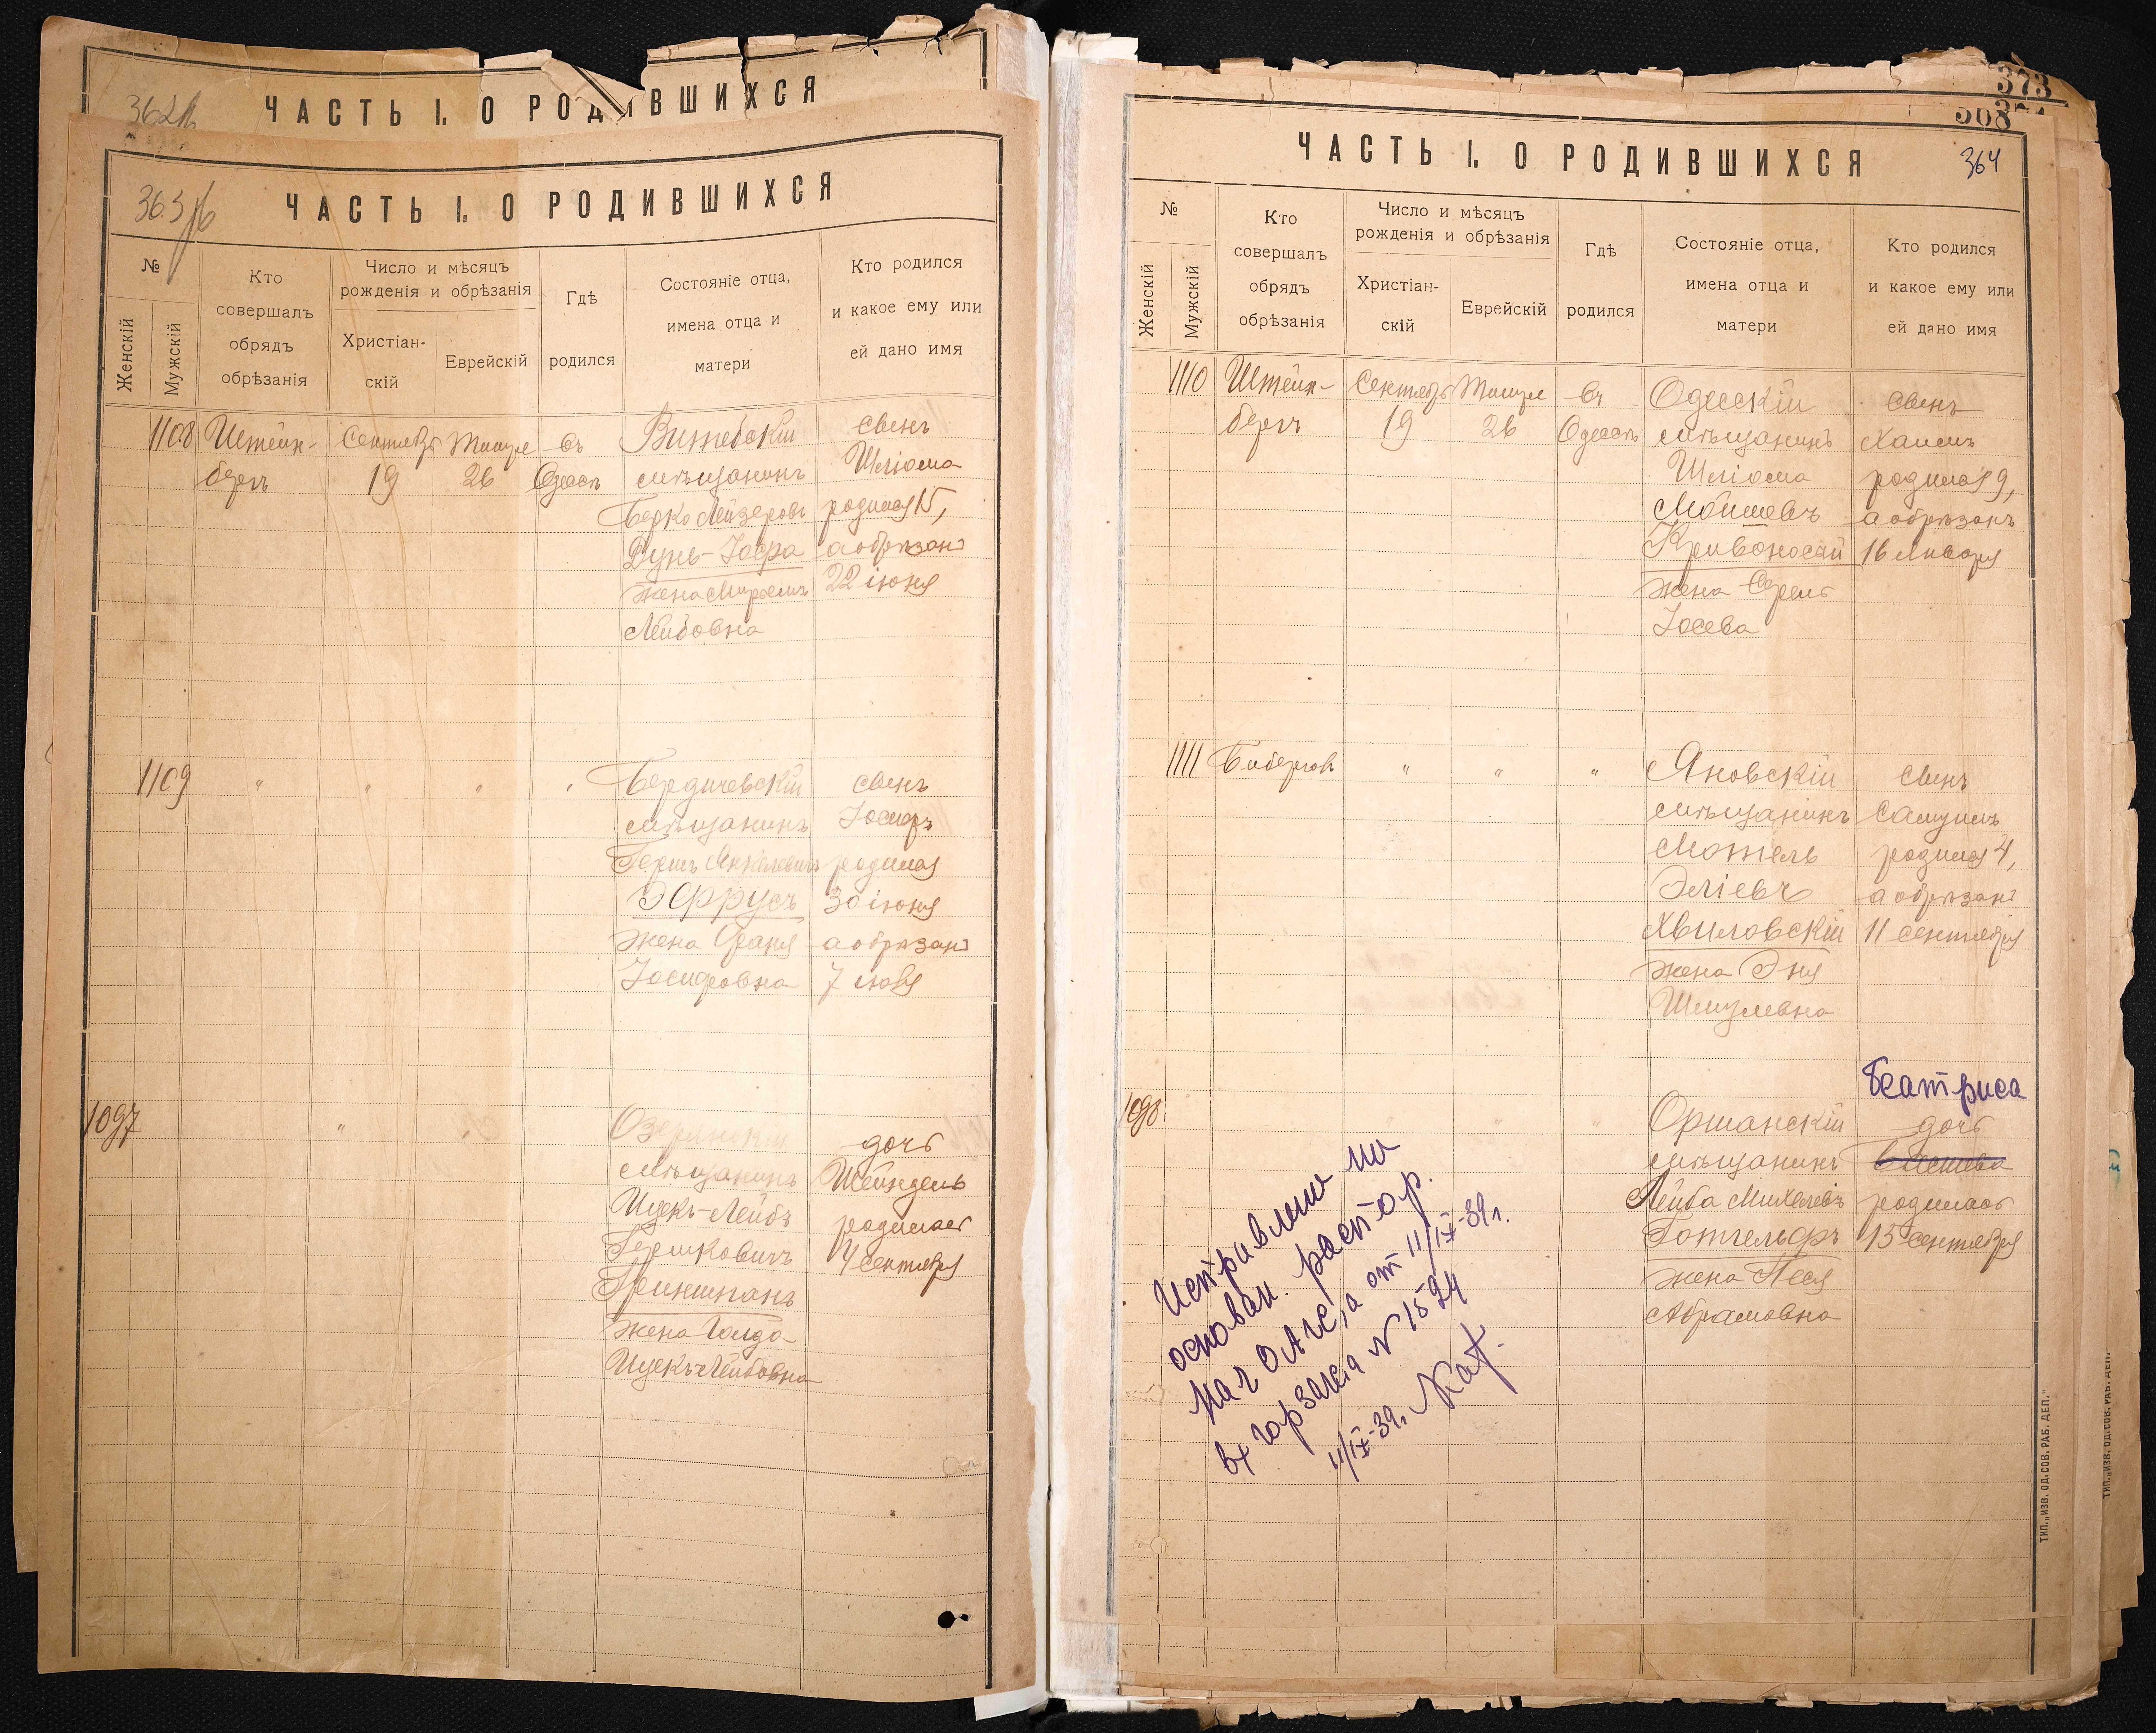 ЧАСТЬ I. О РОДИВШИХСЯ
363
ЧАСТЬ I. О РОДИВШИХСЯ
№
Женскій
Мужскій
Кто
совершалъ
обрядъ
обрѣзанія
Число и мѣсяцъ
рожденія и обрѣзанія
Христіан-
скій
Еврейскій
Гдѣ
родился
Состояніе отца,
имена отца и
матери
Кто родился
и какое ему или
ей дано имя
1108
Штейн-
бергъ
Сентябрь
19
Тишре
26
въ
Одессѣ
Витебскій
мѣщанинъ
Берко Лейзеровъ
Дунь-Іоффа
жена
Лейбовна
сынъ
Шліома
родился 15,
а обрѣзанъ
22 іюня
1109
"
"
"
"
Бердичевскій
мѣщанинъ
Гершъ Янкелевичъ
Эфрусъ
жена Фаня
Іосифовна
сынъ
Іосифъ
родился
30 іюня
а обрѣзанъ
7 іюля
1097
"
"
мѣщанинъ
Ицекъ-Лейбъ
Гершковичъ
Гриншпанъ
жена Голда
Ицекъ-Лейбовна
дочь
Шейндель
родилась
4 сентября
373
308
364
ЧАСТЬ I. О РОДИВШИХСЯ
№
Женскій
Мужскій
Кто
совершалъ
обрядъ
обрѣзанія
Число и мѣсяцъ
рожденія и обрѣзанія
Христіан-
скій
Еврейскій
Гдѣ
родился
Состояніе отца,
имена отца и
матери
Кто родился
и какое ему или
ей дано имя
1110
Штейн-
бергъ
Сентябрь
19
Тишре
26
въ
Одессѣ
Одесскій
мѣщанинъ
Шліома
Мойшевъ
Кривоносый
жена Среля
Іосева
сынъ
Хаимъ
родился 9,
а обрѣзанъ
16 Января
1111
Бибергов
"
"
"
Яновскій
мѣщанинъ
Мотель
Эліевъ
Хвиловскій
жена Эня
Шмулевна
сынъ
Самуилъ
родился 4,
а обрѣзанъ
11 сентября
1098
"
"
Оршанскій
мѣщанинъ
Лейба Михелевъ
Готгельфъ
жена Песя
Абрамовна
Беатриса
дочь
родилась
15 сентября
Исправлено на
основан. распор.
нач ОАГС,а от 11/IX-39г.
вх горзагса N 1524
11/IX-39г.
ТИП. „ИЗВ. ОД. СОВ. РАБ. ДЕП."